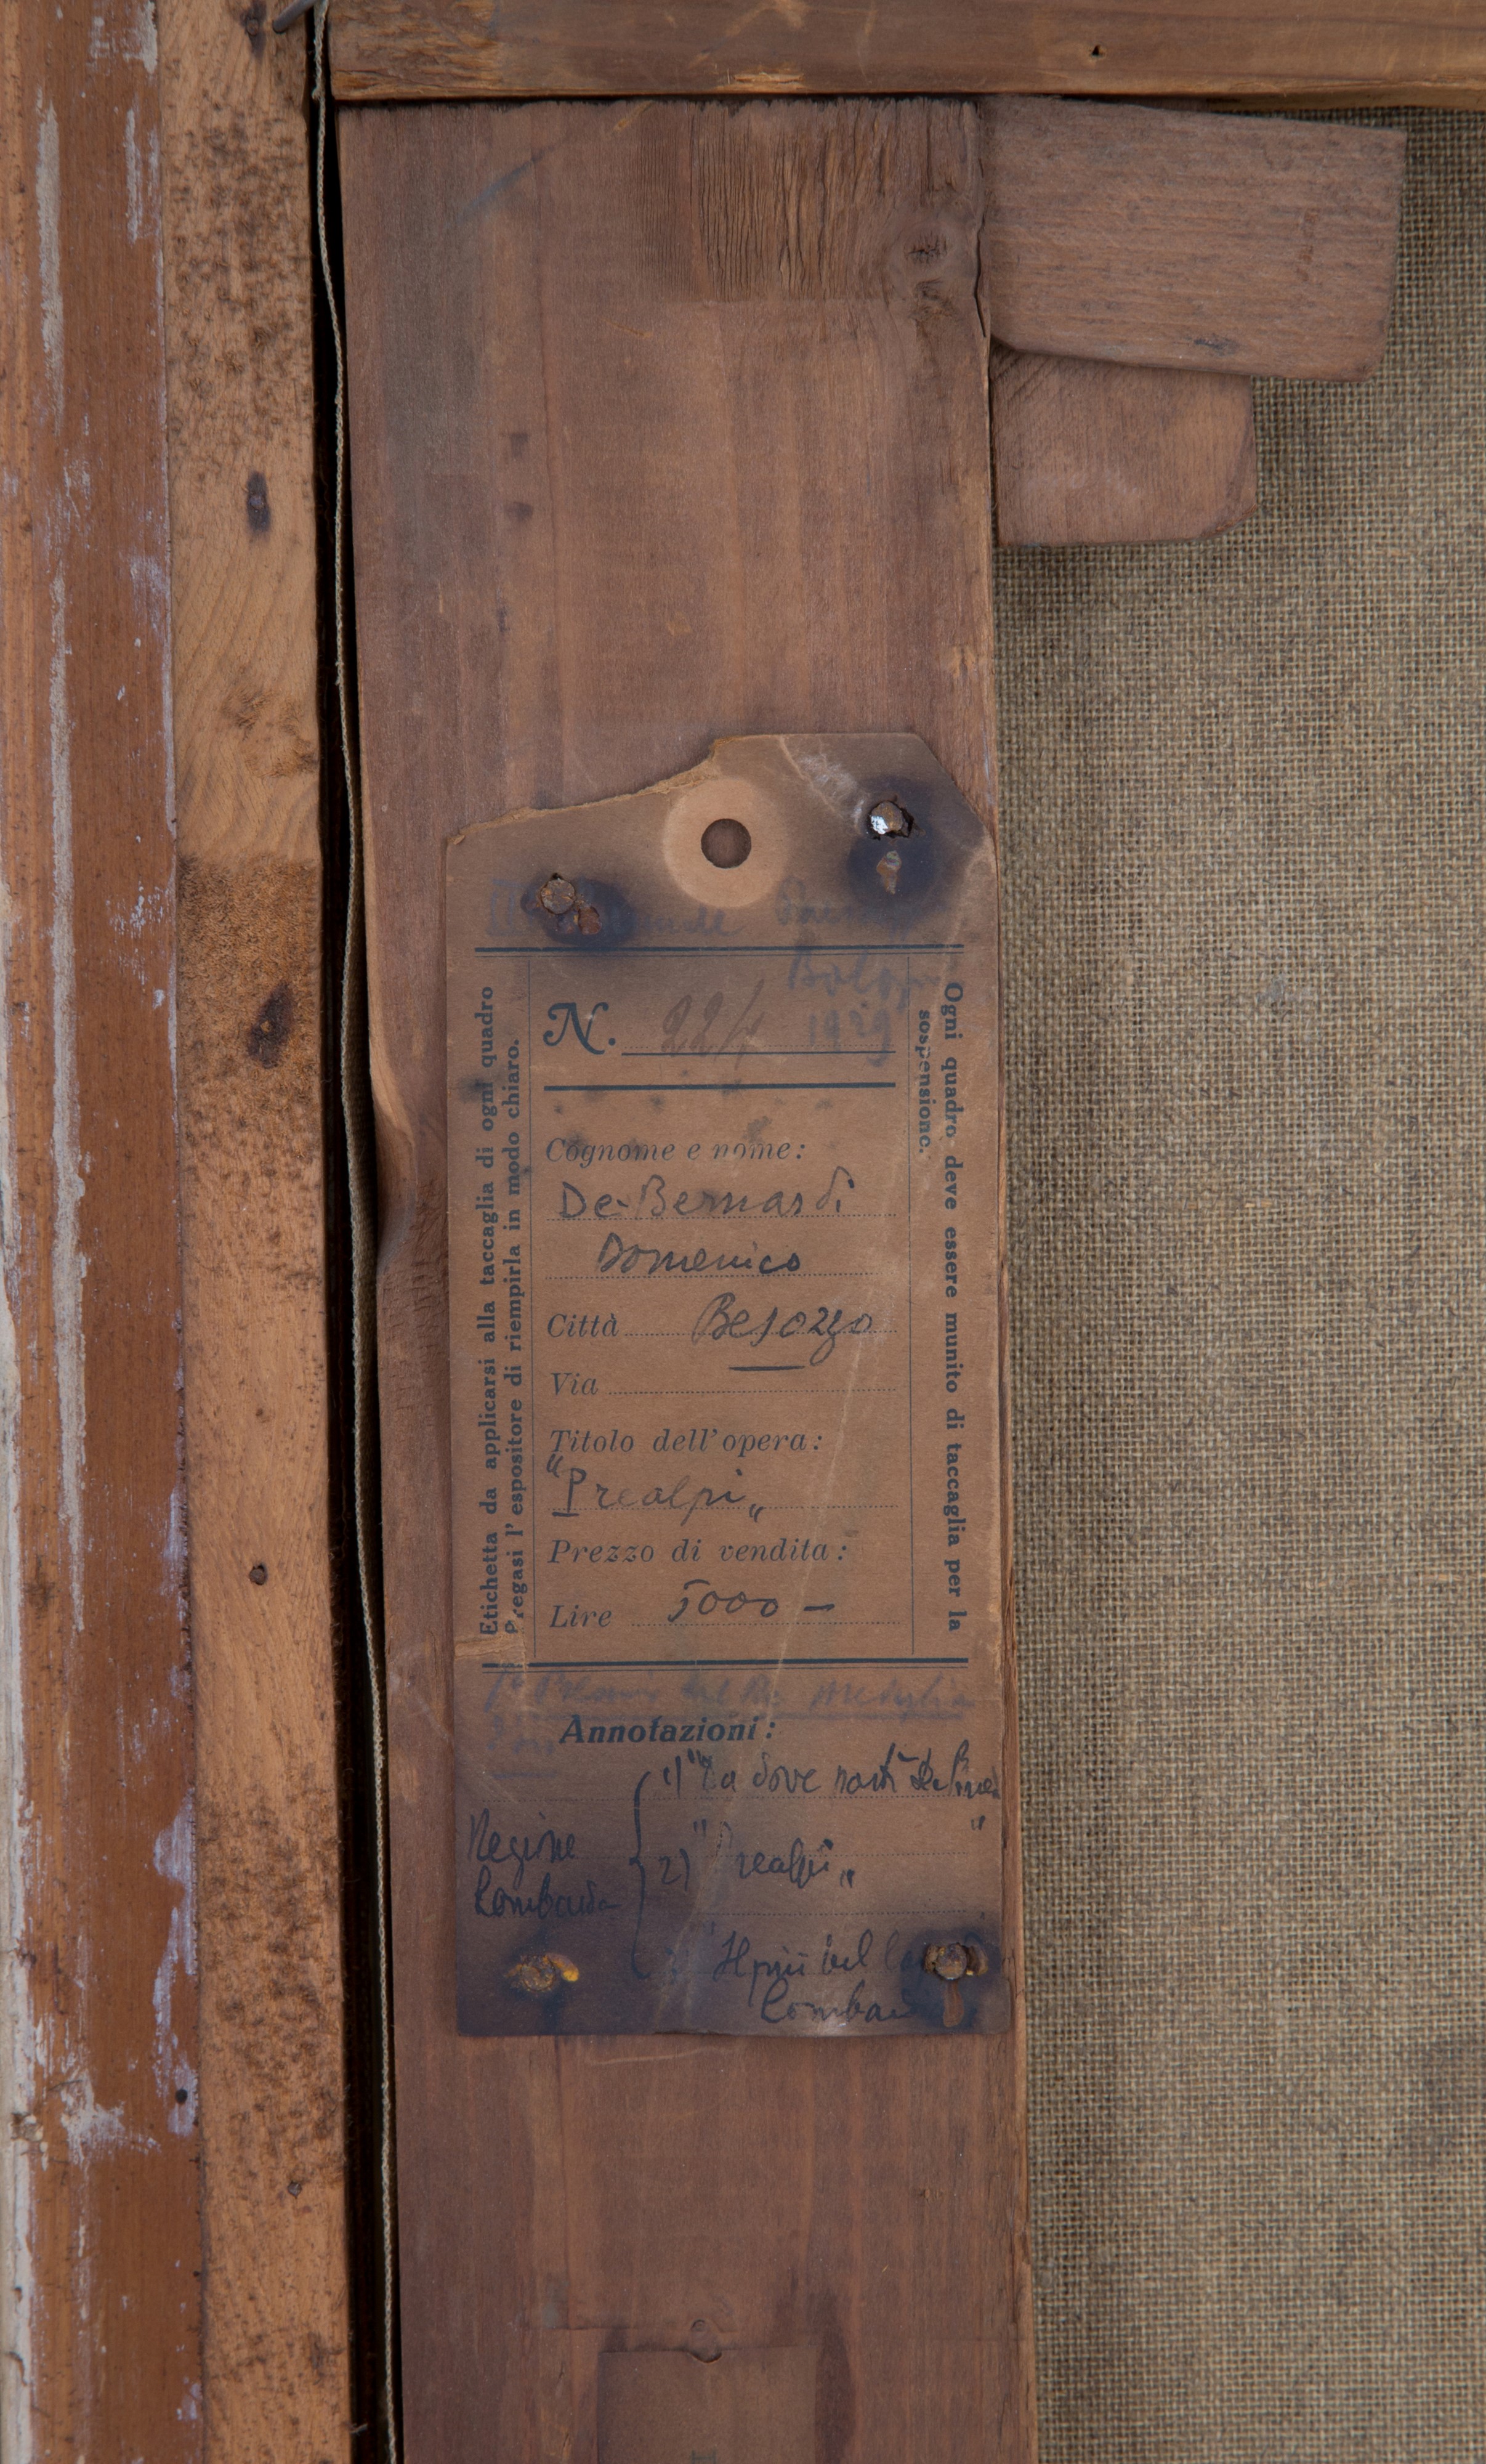 Bologna
N. 224 1929
Etichetta da applicarsi alla taccaglia di ogni quadro
Pregasi l'espositore di riempirla in modo chiaro.
Cognome e nome:
De-Bernardi
Domenico
Città Besozzo
Via
Titolo dell'opera:
"Prealpi„
Prezzo di vendita:
Lire 5000 -
Ogni quadro deve essere munito di taccaglia per la
sospensione.
Annotazioni:
1) "La dove
Regione
Lombarda
2) "Prealpi„